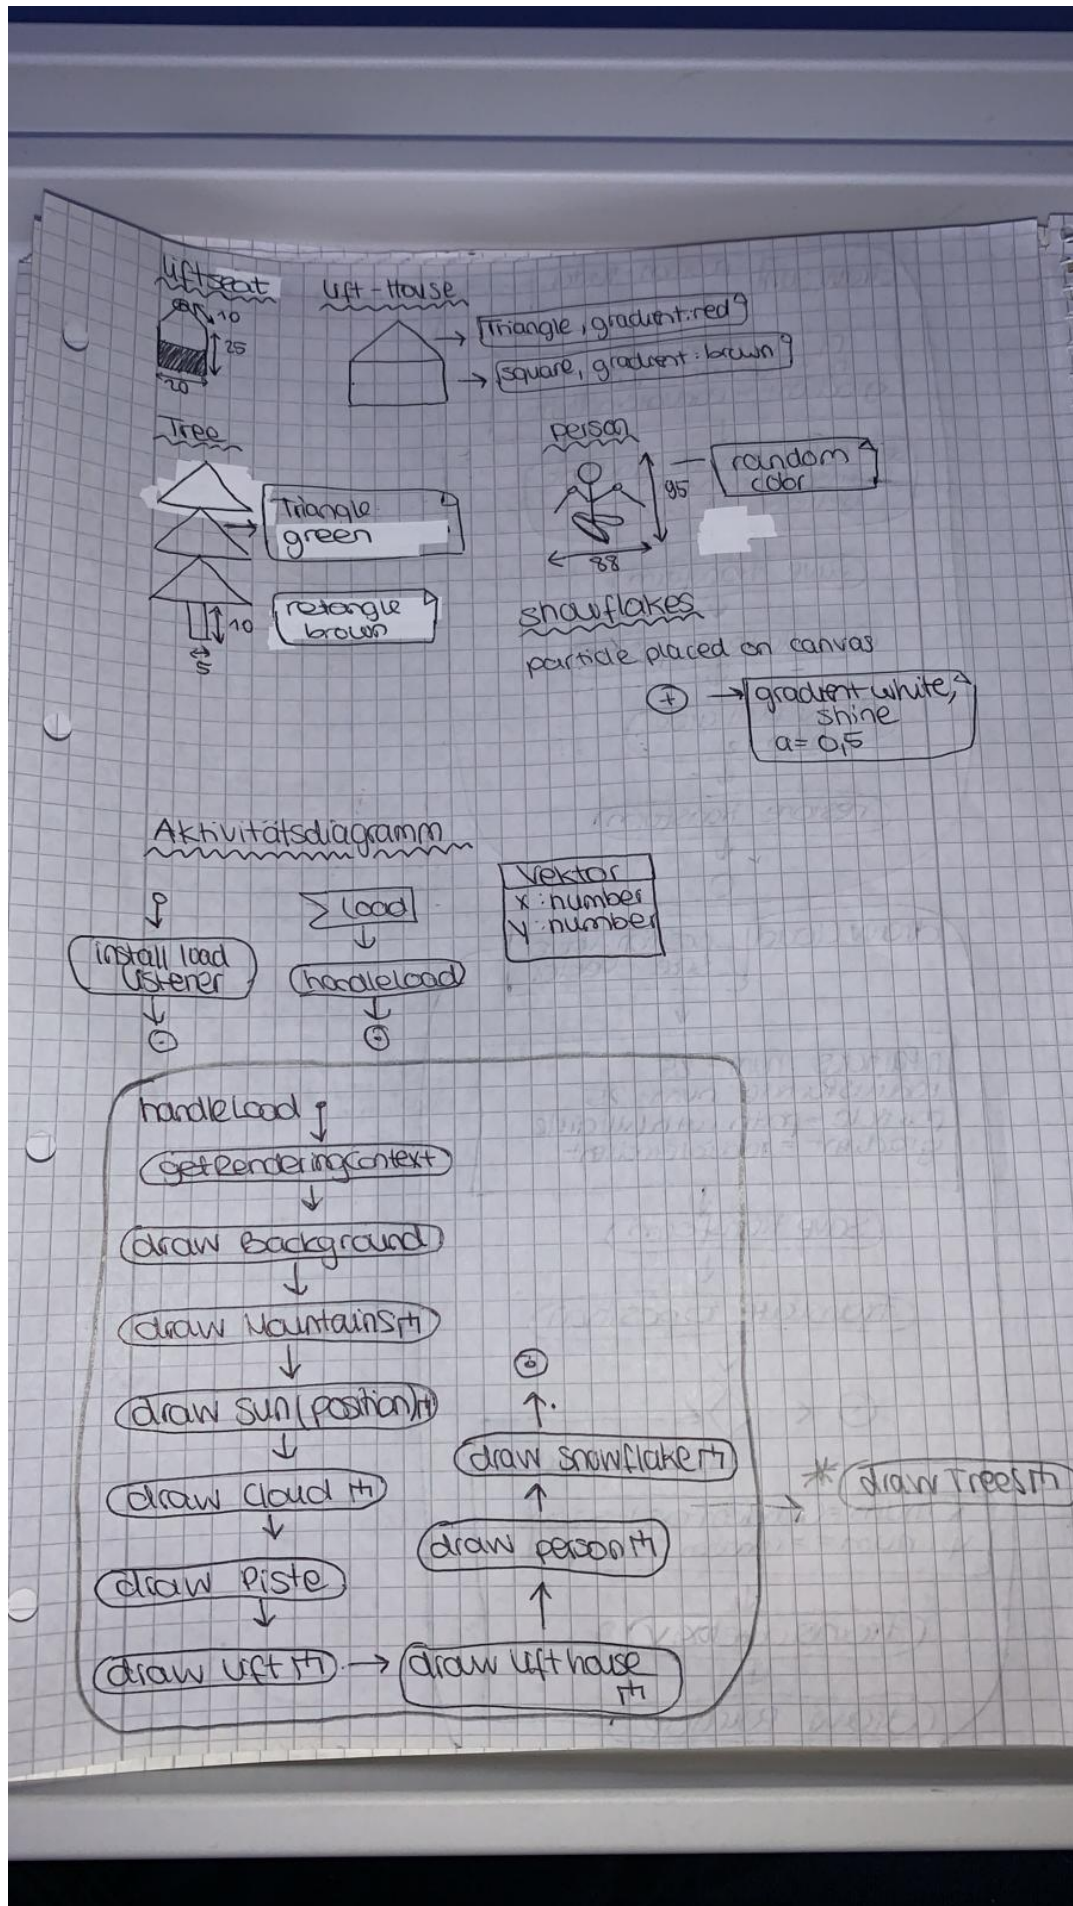 liftseat
10
25
20
Lift-House
Triangle, gradient:red
square, gradient:brown
Tree
Triangle
green
retangle
brown
10
5
person
95
88
random
color
snowflakes
particle placed on canvas
gradient white,
shine
a= 0,5
Aktivitätsdiagramm
install load
listener
load
handleload
Vektor
x:number
y:number
handleLoad
getRenderingContext
draw Background
draw Mountains
draw sun(position)
draw Cloud
draw Piste
draw Lift
draw Lift house
draw person
draw snowflake
* draw Trees